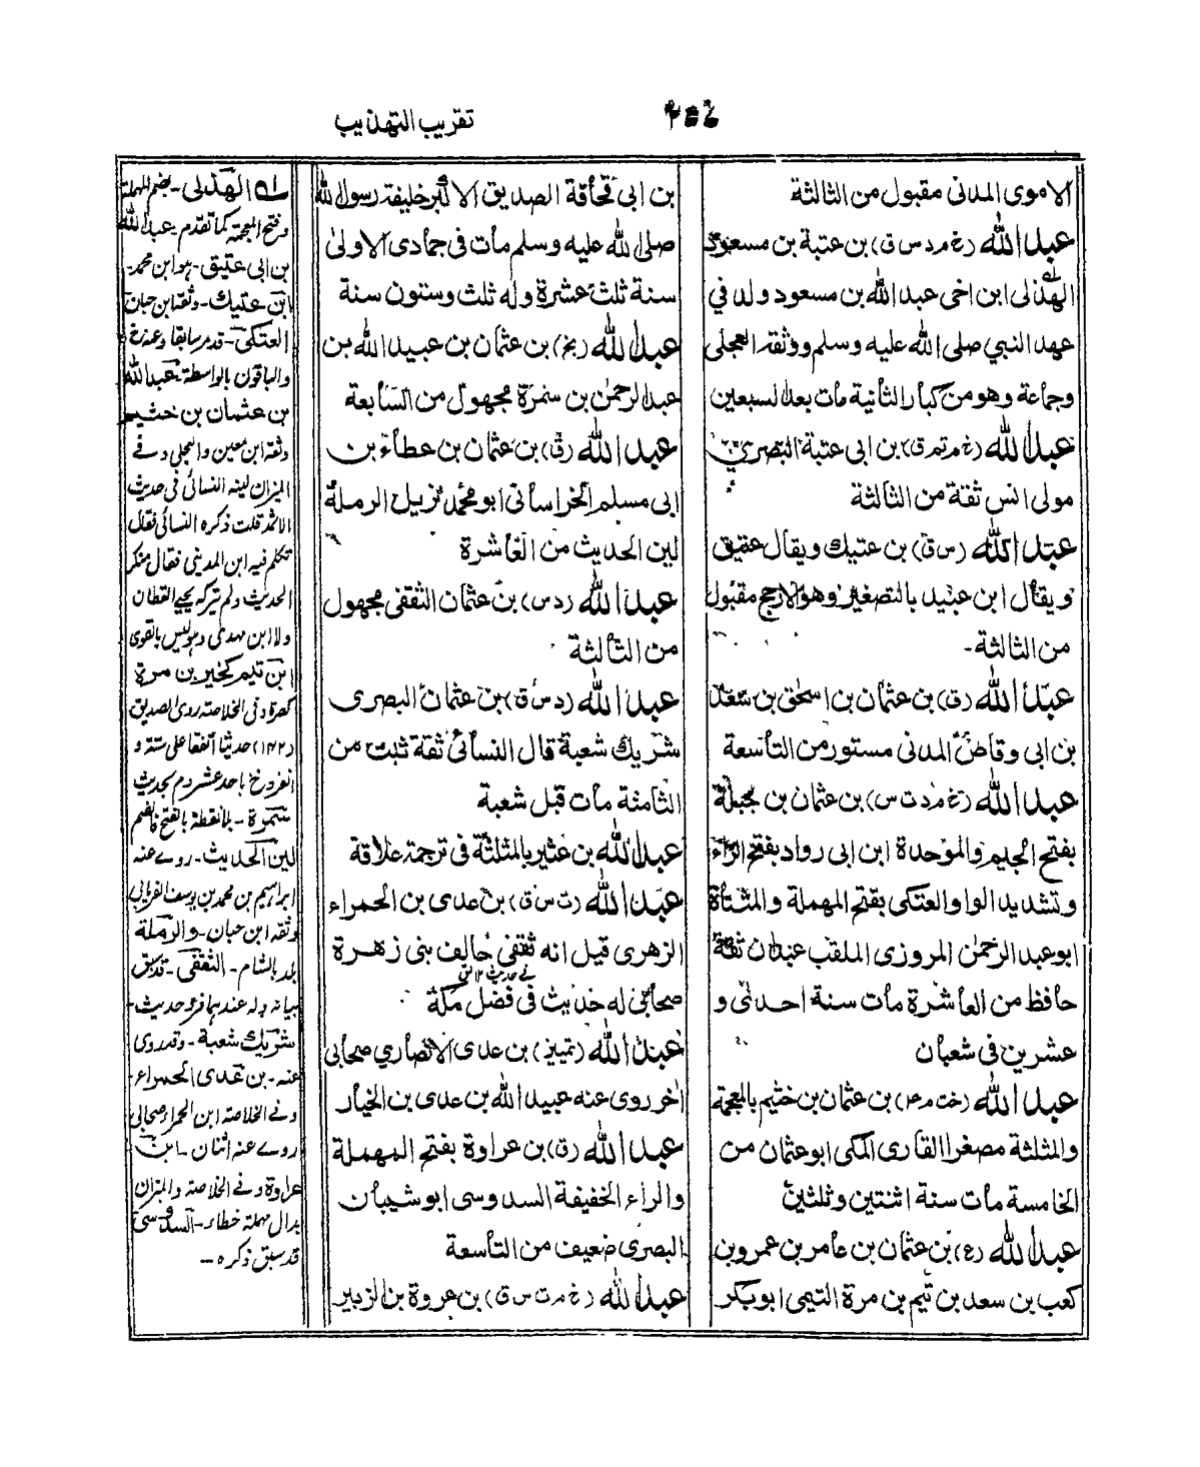 تقريب التهذيب
الاموى المدنى مقبول من الثالثة
عبد الله (خ م د س ق) بن عتبة بن مسعود
الهذلى ابن اخى عبد الله بن مسعود ولد في
عهد النبي صلى الله عليه وسلم ووثقه العجلى
وجماعة وهو من كبار الثانية مات بعد السبعين
عبد الله (خ م تم ق) بن ابى عتبة البصري
مولى انس ثقة من الثالثة
عبد الله (س ق) بن عتيك ويقال عتيق
ويقال ابن عبيد بالتصغير وهو الارجح مقبول
من الثالثة-
عبد الله (ق) بن عثمان بن اسحق بن سعد
بن ابى وقاص المدنى مستور من التاسعة
عبد الله (خ م د ت س) بن عثمان بن جبلة
بفتح الجيم والموحدة ابن ابى رواد بفتح الراء
وتشديد الواو العتكى بفتح المهملة والمثناة
ابو عبد الرحمن المروزى الملقب عبدان ثقة
حافظ من العاشرة مات سنة احدى و
عشرين فى شعبان
عبد الله (خت م) بن عثمان بن خثيم بالمعجمة
والمثلثة مصغرا القارى المكى ابو عثمان من
الخامسة مات سنة اثنتين وثلثين
عبد الله (ع) بن عثمان بن عامر بن عمرو بن
كعب بن سعد بن تيم بن مرة التيمى ابو بكر
بن ابى قحافة الصديق الاكبر خليفة رسول الله
صلى الله عليه وسلم مات فى جمادى الاولى
سنة ثلث عشرة وله ثلث وستون سنة
عبد الله (بخ) بن عثمان بن عبيد الله بن
عبد الرحمن بن سمرة مجهول من السابعة
عبد الله (ق) بن عثمان بن عطاء بن
ابى مسلم الخراسانى ابو محمد نزيل الرملة
لين الحديث من العاشرة
عبد الله (د س) بن عثمان الثقفى مجهول
من الثالثة
عبد الله (د س ق) بن عثمان البصرى
شريك شعبة قال النسائى ثقة ثبت من
الثامنة مات قبل شعبة
عبد الله بن عثير بالمثلثة فى ترجمة علاقة
عبد الله (ت س ق) بن عدى بن الحمراء
الزهرى قيل انه ثقفى حالف بنى زهرة
صحابى له حديث فى فضل مكة
عبد الله (تمييز) بن عدى الانصاري صحابى
آخر روى عنه عبيد الله بن عدى بن الخيار
عبد الله (ق) بن عرادة بفتح المهملة
والراء الخفيفة السدوسى ابو شيبان
البصرى ضعيف من التاسعة
عبد الله (خ م ت س ق) بن عروة بن الزبير
له الهذلى- بضم المهملة
وفتح المعجمة كما تقدم- عبد الله
بن ابى عتيق- هو ابن محمد-
ابن عتيك- وثقه ابن حبان
العتكى- قد مر سابقا وعنه خ
والباقون بالواسطة عبد الله
بن عثمان بن خثيم
وثقه ابن معين والعجلى وفے
الميزان لينه النسائى فى حديث
الاثمد قلت ذكره النسائى فقال
تكلم فيه ابن المدينى فقال منكر
الحديث ولم تركه يحيى القطان
ولا ابن مهدى وليس بالقوى
ابن تيم بن مرة
وفى الخلاصة روى الصديق
(١٤٢) حديثا اتفقا على ستة و
انفرد خ باحد عشر و م بحديث
سمرة- بلا نقطة بالفتح فالضم
لين الحديث- روے عنه
ابراهيم بن محمد بن يوسف الفريابى
وثقه ابن حبان- والرملة
بلد بالشام- الثقفى- قد سبق
بيانه وله عندهما فرد حديث-
شريك شعبة- وقد روى
عنه- بن عدى الحمراء-
وفے الخلاصة ابن الحمراء صحابى
روے عنه اثنان- ابن
عرادة وفے الخلاصة والميزان
بدال مهملة خطاء- السدوسى
قد سبق ذكره-